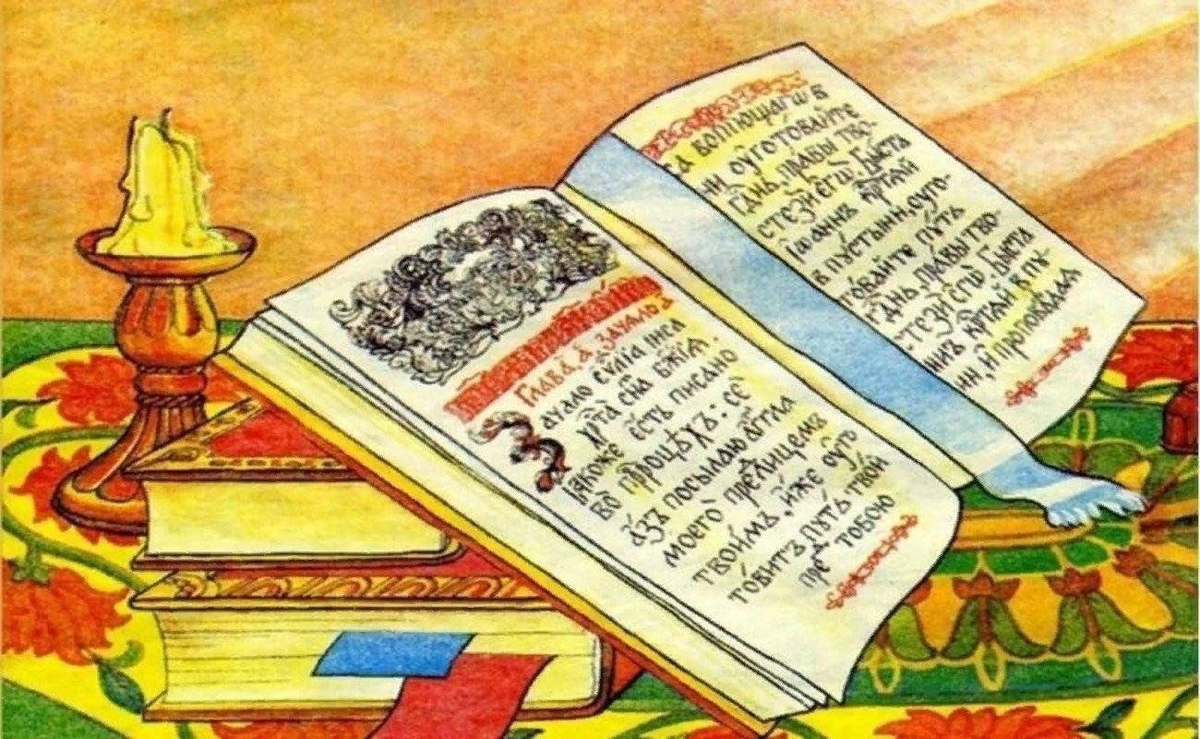 Глава, а҃ зачало, а҃
Зачало єѵⷢ҇лїа іи҃са
хрⷭ҇та̀ сн҃а бж҃їѧ.
Ꙗкоже є҆́сть писано
во̀ прⷪ҇ро́цѣхъ: сѐ
а҆́зъ посылаю а҆́гг҃ла
моегѡ̀ пред̾ лицемъ
твои́мъ, и҆́же ᲂу҆гᲂ
то́витъ пу́ть тво́й
пред̾ тобою
са вопїющагѡ в
ни, ᲂу҆гото́вайте
гдⷭ҇нь, правы тво-
стезѝ є҆гѡ̀. Бы́ста
Іѡаннъ крⷭ҇та́й
в пустыни, ᲂу҆го-
то́вайте пу́ть
гдⷭ҇нь, пра́вы тво-
стезѝ є҆гѡ̀ Бы́ста
ннъ крⷭ҇та́й в пу-
ни, и҆ проповѣдаѧ